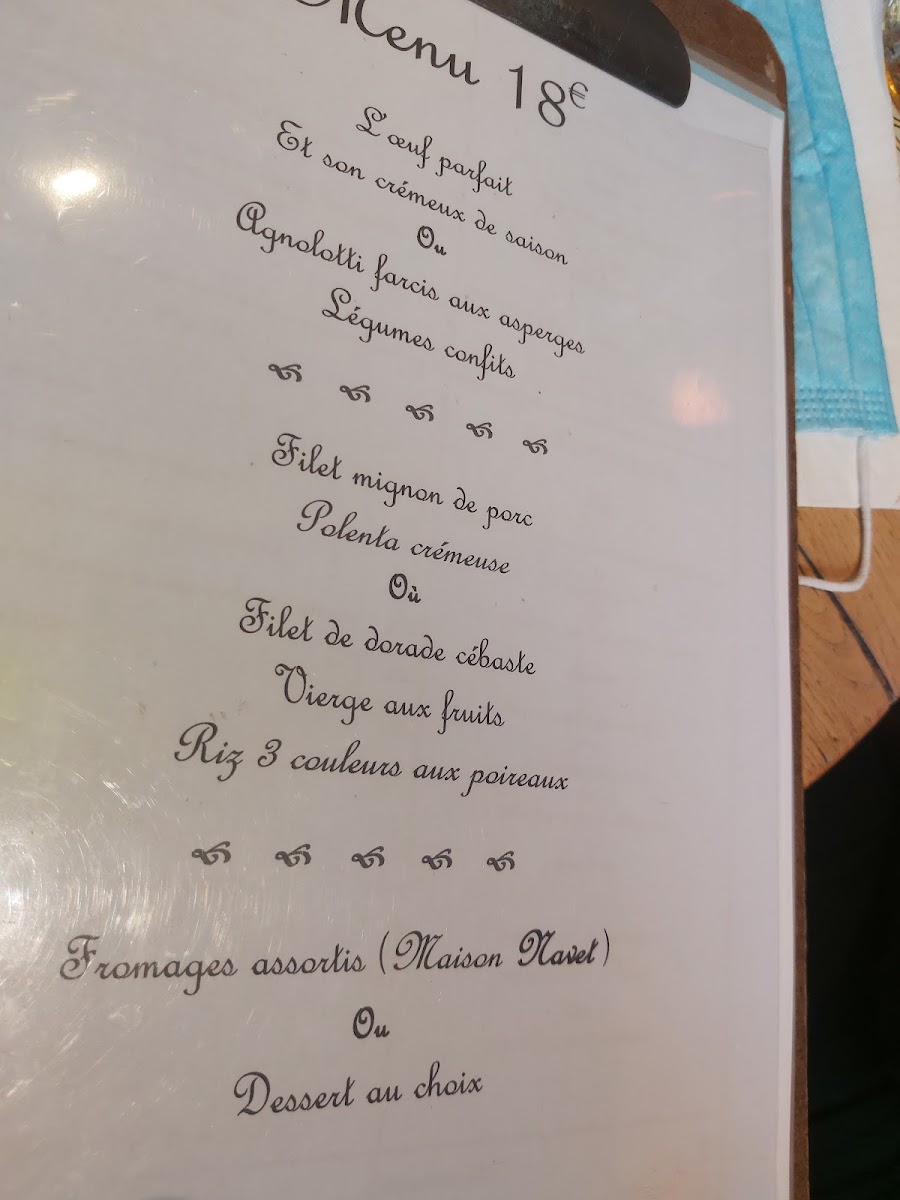 Menu 18€
L'œuf parfait
Et son crémeux de saison
Ou
Agnolotti farcis aux asperges
Légumes confits
Filet mignon de porc
Polenta crémeuse
Où
Filet de dorade cébaste
Vierge aux fruits
Riz 3 couleurs aux poireaux
Fromages assortis (Maison Navet)
Ou
Dessert au choix